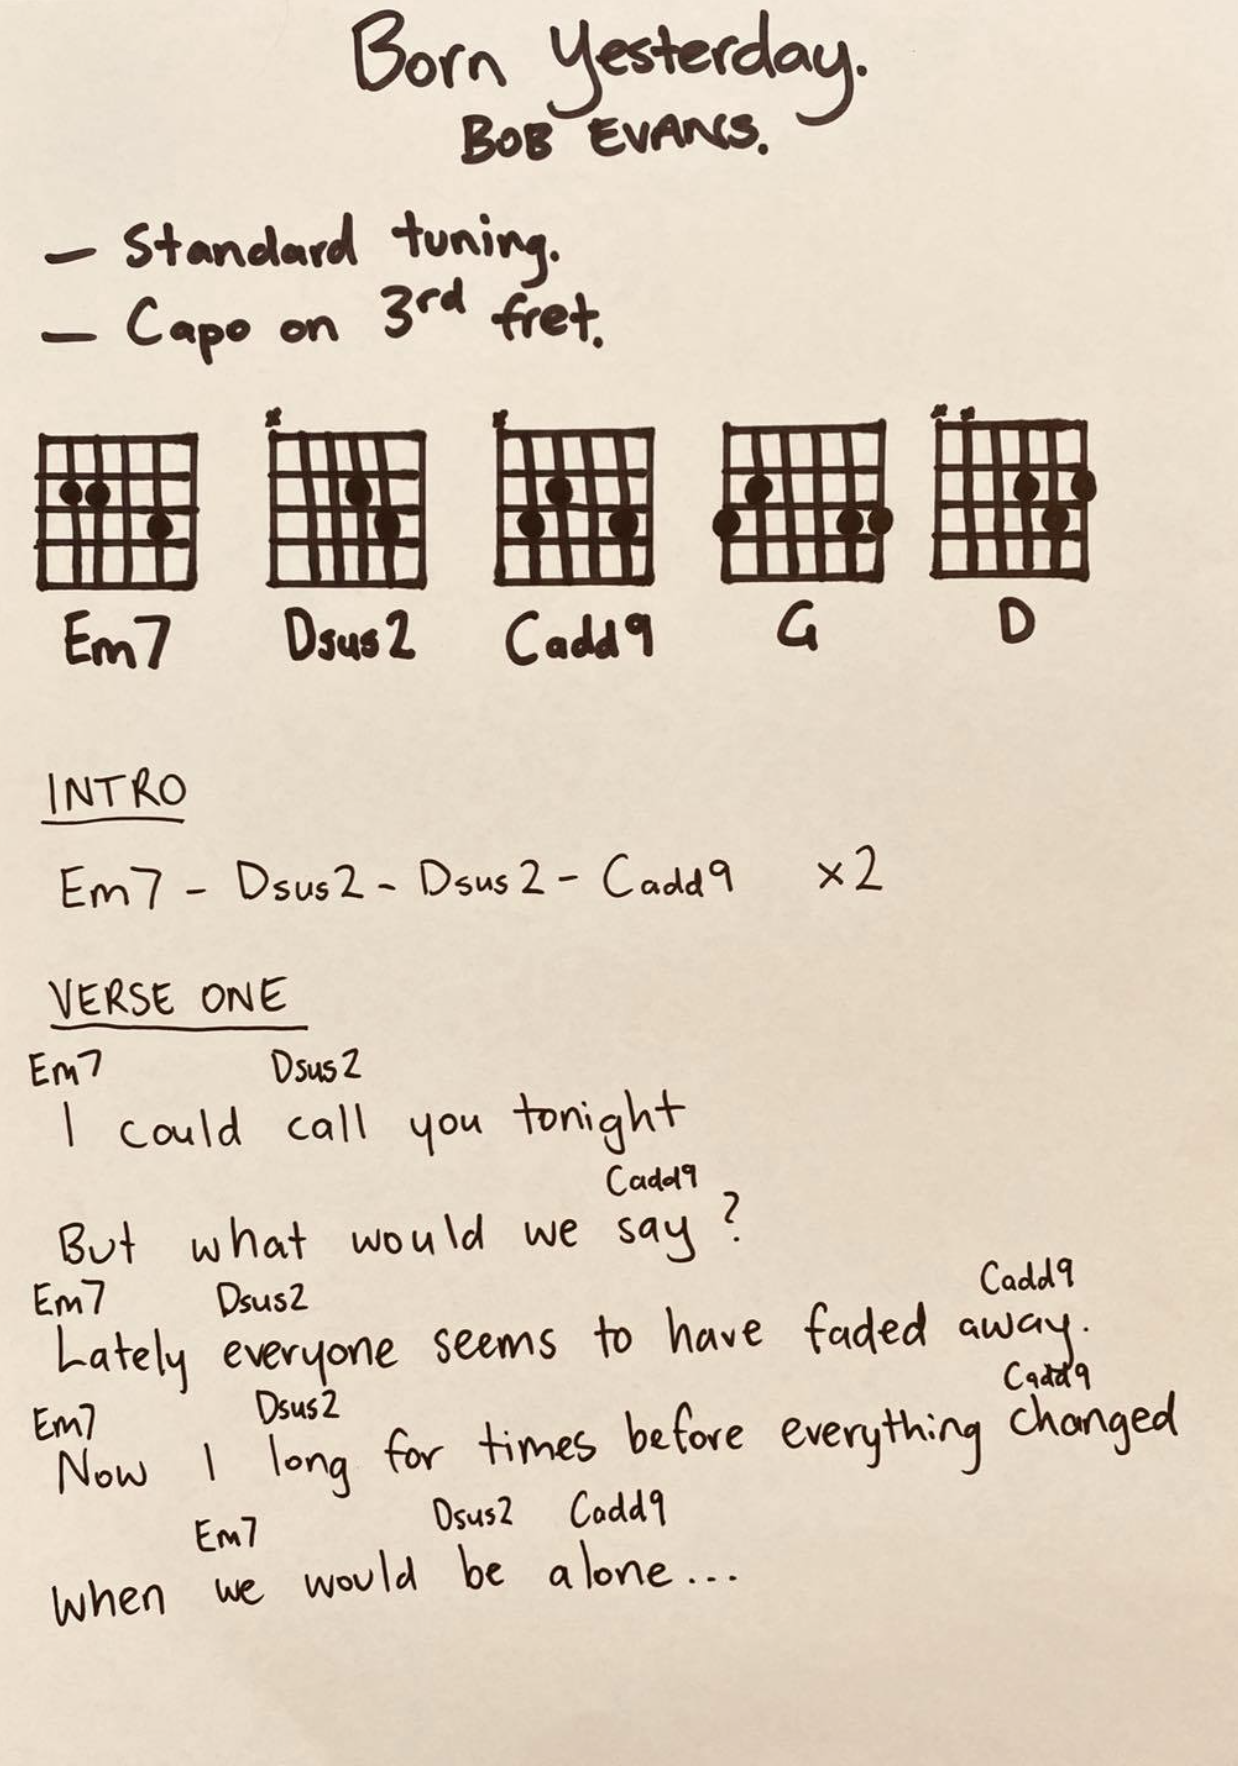 Born Yesterday.
BOB EVANS.
- Standard tuning.
- Capo on 3rd fret.
x x x x
Em7 Dsus2 Cadd9 G D
INTRO
Em7 - Dsus2 - Dsus2 - Cadd9 x2
VERSE ONE
Em7 Dsus2
I could call you tonight
Cadd9
But what would we say?
Em7 Dsus2 Cadd9
Lately everyone seems to have faded away.
Em7 Dsus2 Cadd9
Now I long for times before everything changed
Em7 Dsus2 Cadd9
When we would be alone...